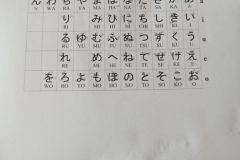 ん わ ら や ま は な た さ か あ
N WA RA YA MA HA NA TA SA KA A a
り み ひ に ち し き い i
RI MI HI NI CHI SHI KI I
る ゆ む ふ ぬ つ す く う u
RU YU MU FU NU TSU SU KU U
れ め へ ね て せ け え e
RE ME HE NE TE SE KE E
を ろ よ も ほ の と そ こ お o
WO RO YO MO HO NO TO SO KO O